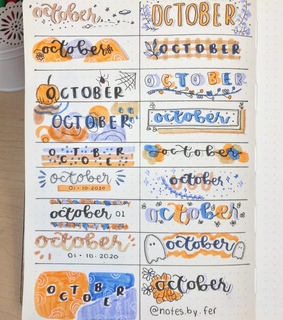 october
OCTOBER
october
OCTOBER
OCTOBER
OCTOBER
OCTOBER
october
OCT
OBER
october
october
01•10•2020
october
october 01
october
october
01•10•2020
october
OCT
OBER
october
@notes.by.fer